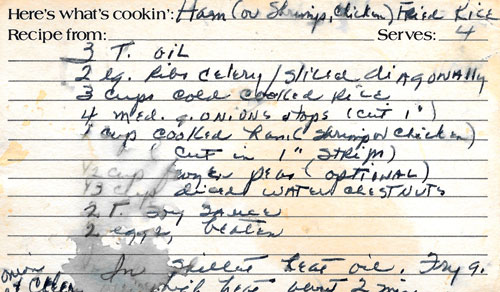 Here's what's cookin': Ham (or Shrimp, Chicken) Fried Rice
Recipe from: Serves: 4
3 T. oil
2 lg. Ribs celery / sliced diagonally
3 cups cold cooked Rice
4 med. g. onions & tops (cut 1")
1 cup cooked Ham (Shrimp or chicken)
(cut in 1" strips)
1/2 cup frozen peas (optional)
1/3 cup diced WATER CHESTNUTS
2 T. Soy Sauce
2 eggs, beaten
In skillet heat oil. Fry g.
onions & celery high heat about 2 min